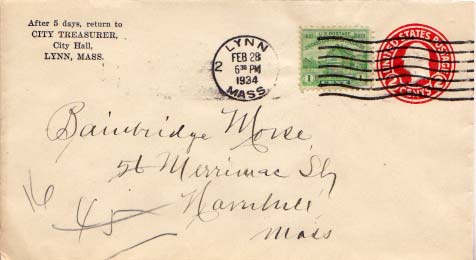 After 5 days, return to
CITY TREASURER,
City Hall,
LYNN, MASS.
LYNN
2
FEB 28
6 30 PM
1934
MASS
U.S. POSTAGE
1 CENT 1
UNITED STATES POSTAGE
CENTS
Bainbridge Morse
56 Merrimac St
Haverhill
Mass
16
45